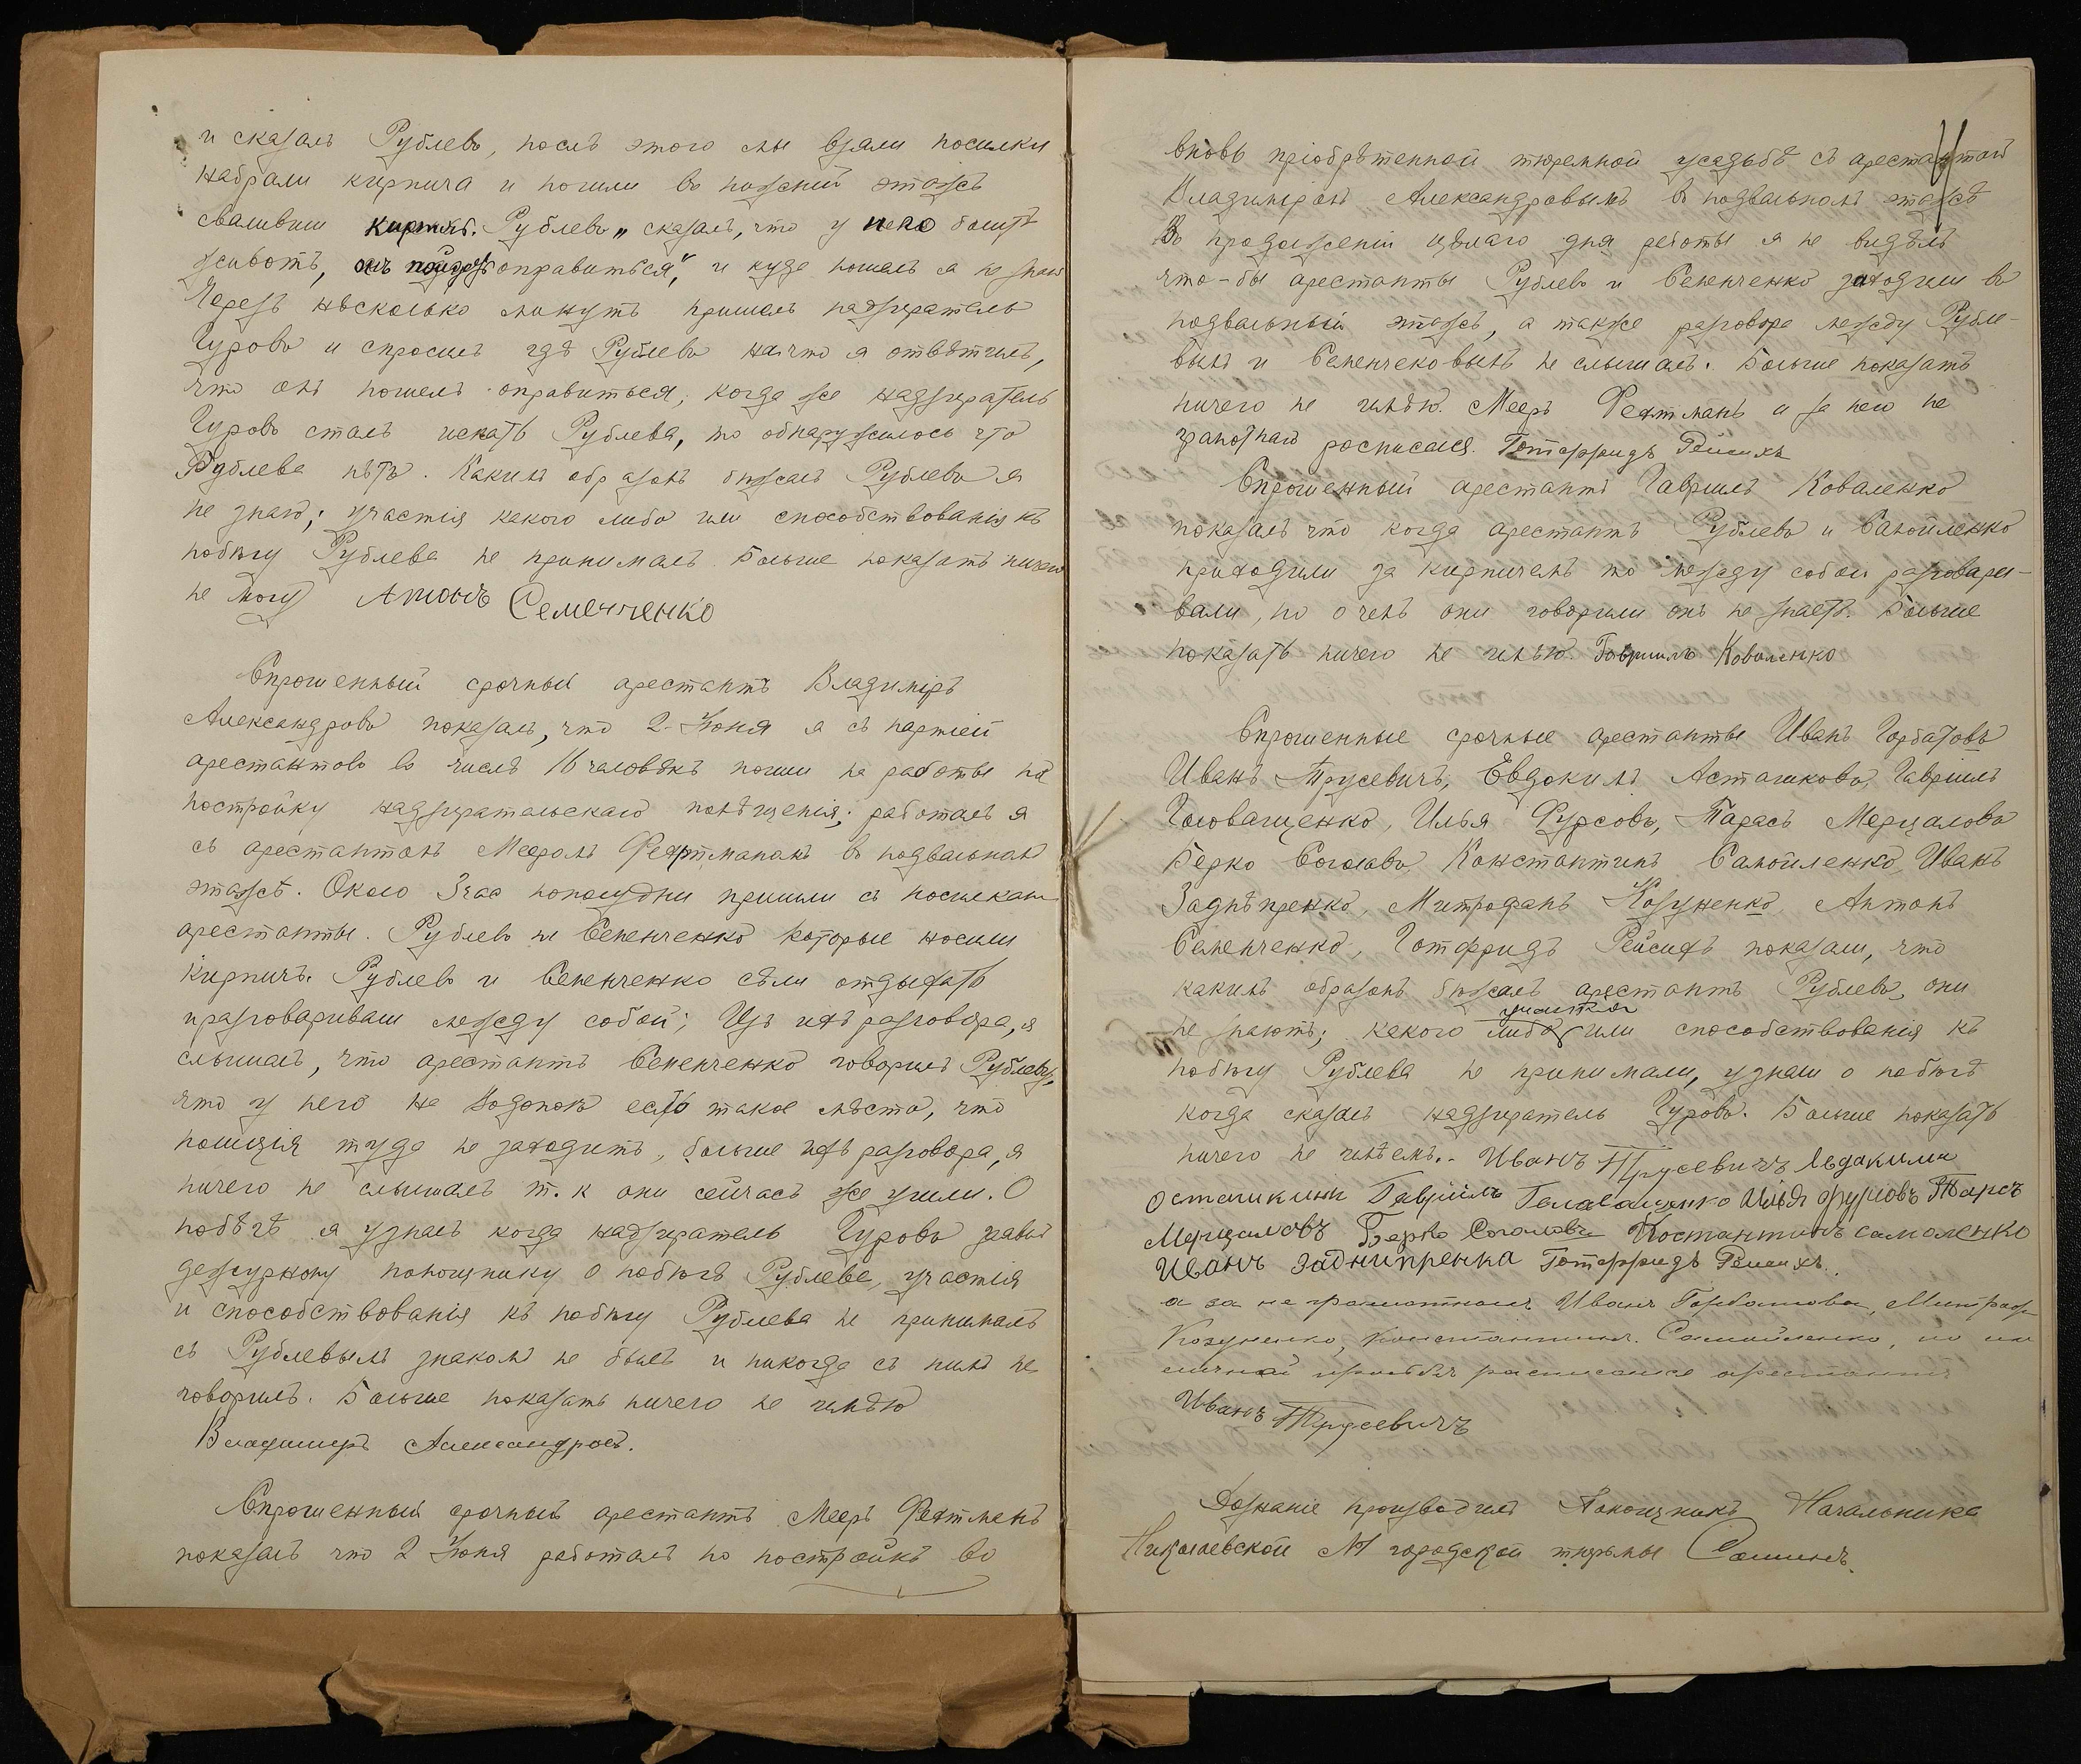 и сказалъ Рублевъ, послѣ этого мы взяли носилки
набрали кирпича и пошли въ нижній этажъ
сваливши кирпичъ. Рублевъ „сказалъ, что у него болитъ
животъ, онъ пойдетъ оправиться", и куда пошелъ я не знаю
Черезъ нѣсколько минутъ пришелъ надзиратель
Чуровъ и спросилъ гдѣ Рублевъ на что я отвѣтилъ,
что онъ пошелъ оправиться, когда же надзиратель
Чуровъ сталъ искать Рублева, то обнаружилось что
Рублева нѣтъ. Какимъ образомъ бѣжалъ Рублевъ я
не знаю; участія какого либо или способствованія къ
побѣгу Рублева не принималъ. Больше показать ничего
не могу Антонъ Семенченко
Спрошенный срочный арестантъ Владиміръ
Александровъ показалъ, что 2-Юня я съ партіей
арестантовъ въ числѣ 16 человѣкъ пошли на работы на
постройку надзирательскаго помѣщенія; работалъ я
съ арестантомъ Мееромъ Фехтманомъ въ подвальномъ
этажѣ. Около 3 час пополудни пришли съ носилками
арестанты. Рублевъ и Семенченко которые носили
кирпичъ. Рублевъ и Семенченко сѣли отдыхать
и разговаривали между собой; Изъ ихъ разговора, я
слышалъ, что арестантъ Семенченко говорилъ Рублеву,
что у него на Водопоѣ есть такое мѣсто, что
полиція туда не заходитъ, больше ихъ разговора, я
ничего не слышалъ т. к они сейчасъ же ушли. О
побѣгѣ я узналъ когда надзиратель Чуровъ заявилъ
дежурному помощнику о побѣгѣ Рублева, участія
и способствованія къ побѣгу Рублева не принималъ
съ Рублевымъ знакомъ не былъ и никогда съ нимъ не
говорилъ. Больше показать ничего не имѣю
Владимеръ Александровъ.
Спрошенный срочный арестантъ Мееръ Фехтманъ
показалъ что 2 Юня работалъ по постройкѣ во
вновь пріобрѣтенной тюремной усадьбѣ съ арестантомъ
Владиміромъ Александровымъ въ подвальномъ этажѣ
Въ продолженіи цѣлаго дня работы я не видѣлъ
что-бы арестанты Рублевъ и Семенченко заходили въ
подвальный этажъ, а также разговора между Рубле-
вымъ и Семенчековымъ не слышалъ. Больше показать
ничего не имѣю. Мееръ Фехтманъ а за него не
грамотнаго росписался. Готфридъ Рейсихъ
Спрошенный арестантъ Гавріилъ Коваленко
показалъ что когда арестантъ Рублевъ и Самойленко
приходили за кирпичемъ то между собой разговари-
вали, но о чемъ они говорили онъ не знаетъ. Больше
показать ничего не имѣю. Гавриилъ Коваленко
Спрошенные срочные арестанты Иванъ Горбатовъ
Иванъ Трусевичъ, Евдокимъ Асташковъ, Гавріилъ
Головащенко, Илья Фурсовъ, Тарасъ Мерцаловъ
Берко Соголовъ, Константинъ Самойленко, Иванъ
Заднѣпренко, Митрофанъ Козуненко, Антонъ
Семенченко, Готфридъ Рейсихъ показали, что
какимъ образомъ бѣжалъ арестантъ Рублевъ, они
участія
не знаютъ; какого либо или способствованія къ
побѣгу Рублева не принимали, узнали о побѣгѣ
когда сказалъ надзиратель Чуровъ. Больше показать
ничего не имѣемъ. Иванъ Трусевичъ Авдакими
Осташикини Гавріилъ Галаващенко Илья фурсовъ Тарсъ
Мерцаловъ Берко Соголовъ Костантинъ самоленко
Иванъ Заднипренка Готфридъ Рейсихъ.
а за не грамотныхъ Ивана Горбатова, Митроф
Козуненко, Константина Самойленко, по их
личной просьбѣ расписался арестантъ
Иванъ Трусевичъ
Дознаніе производилъ Помощникъ Начальника
Николаевской № городской тюрьмы